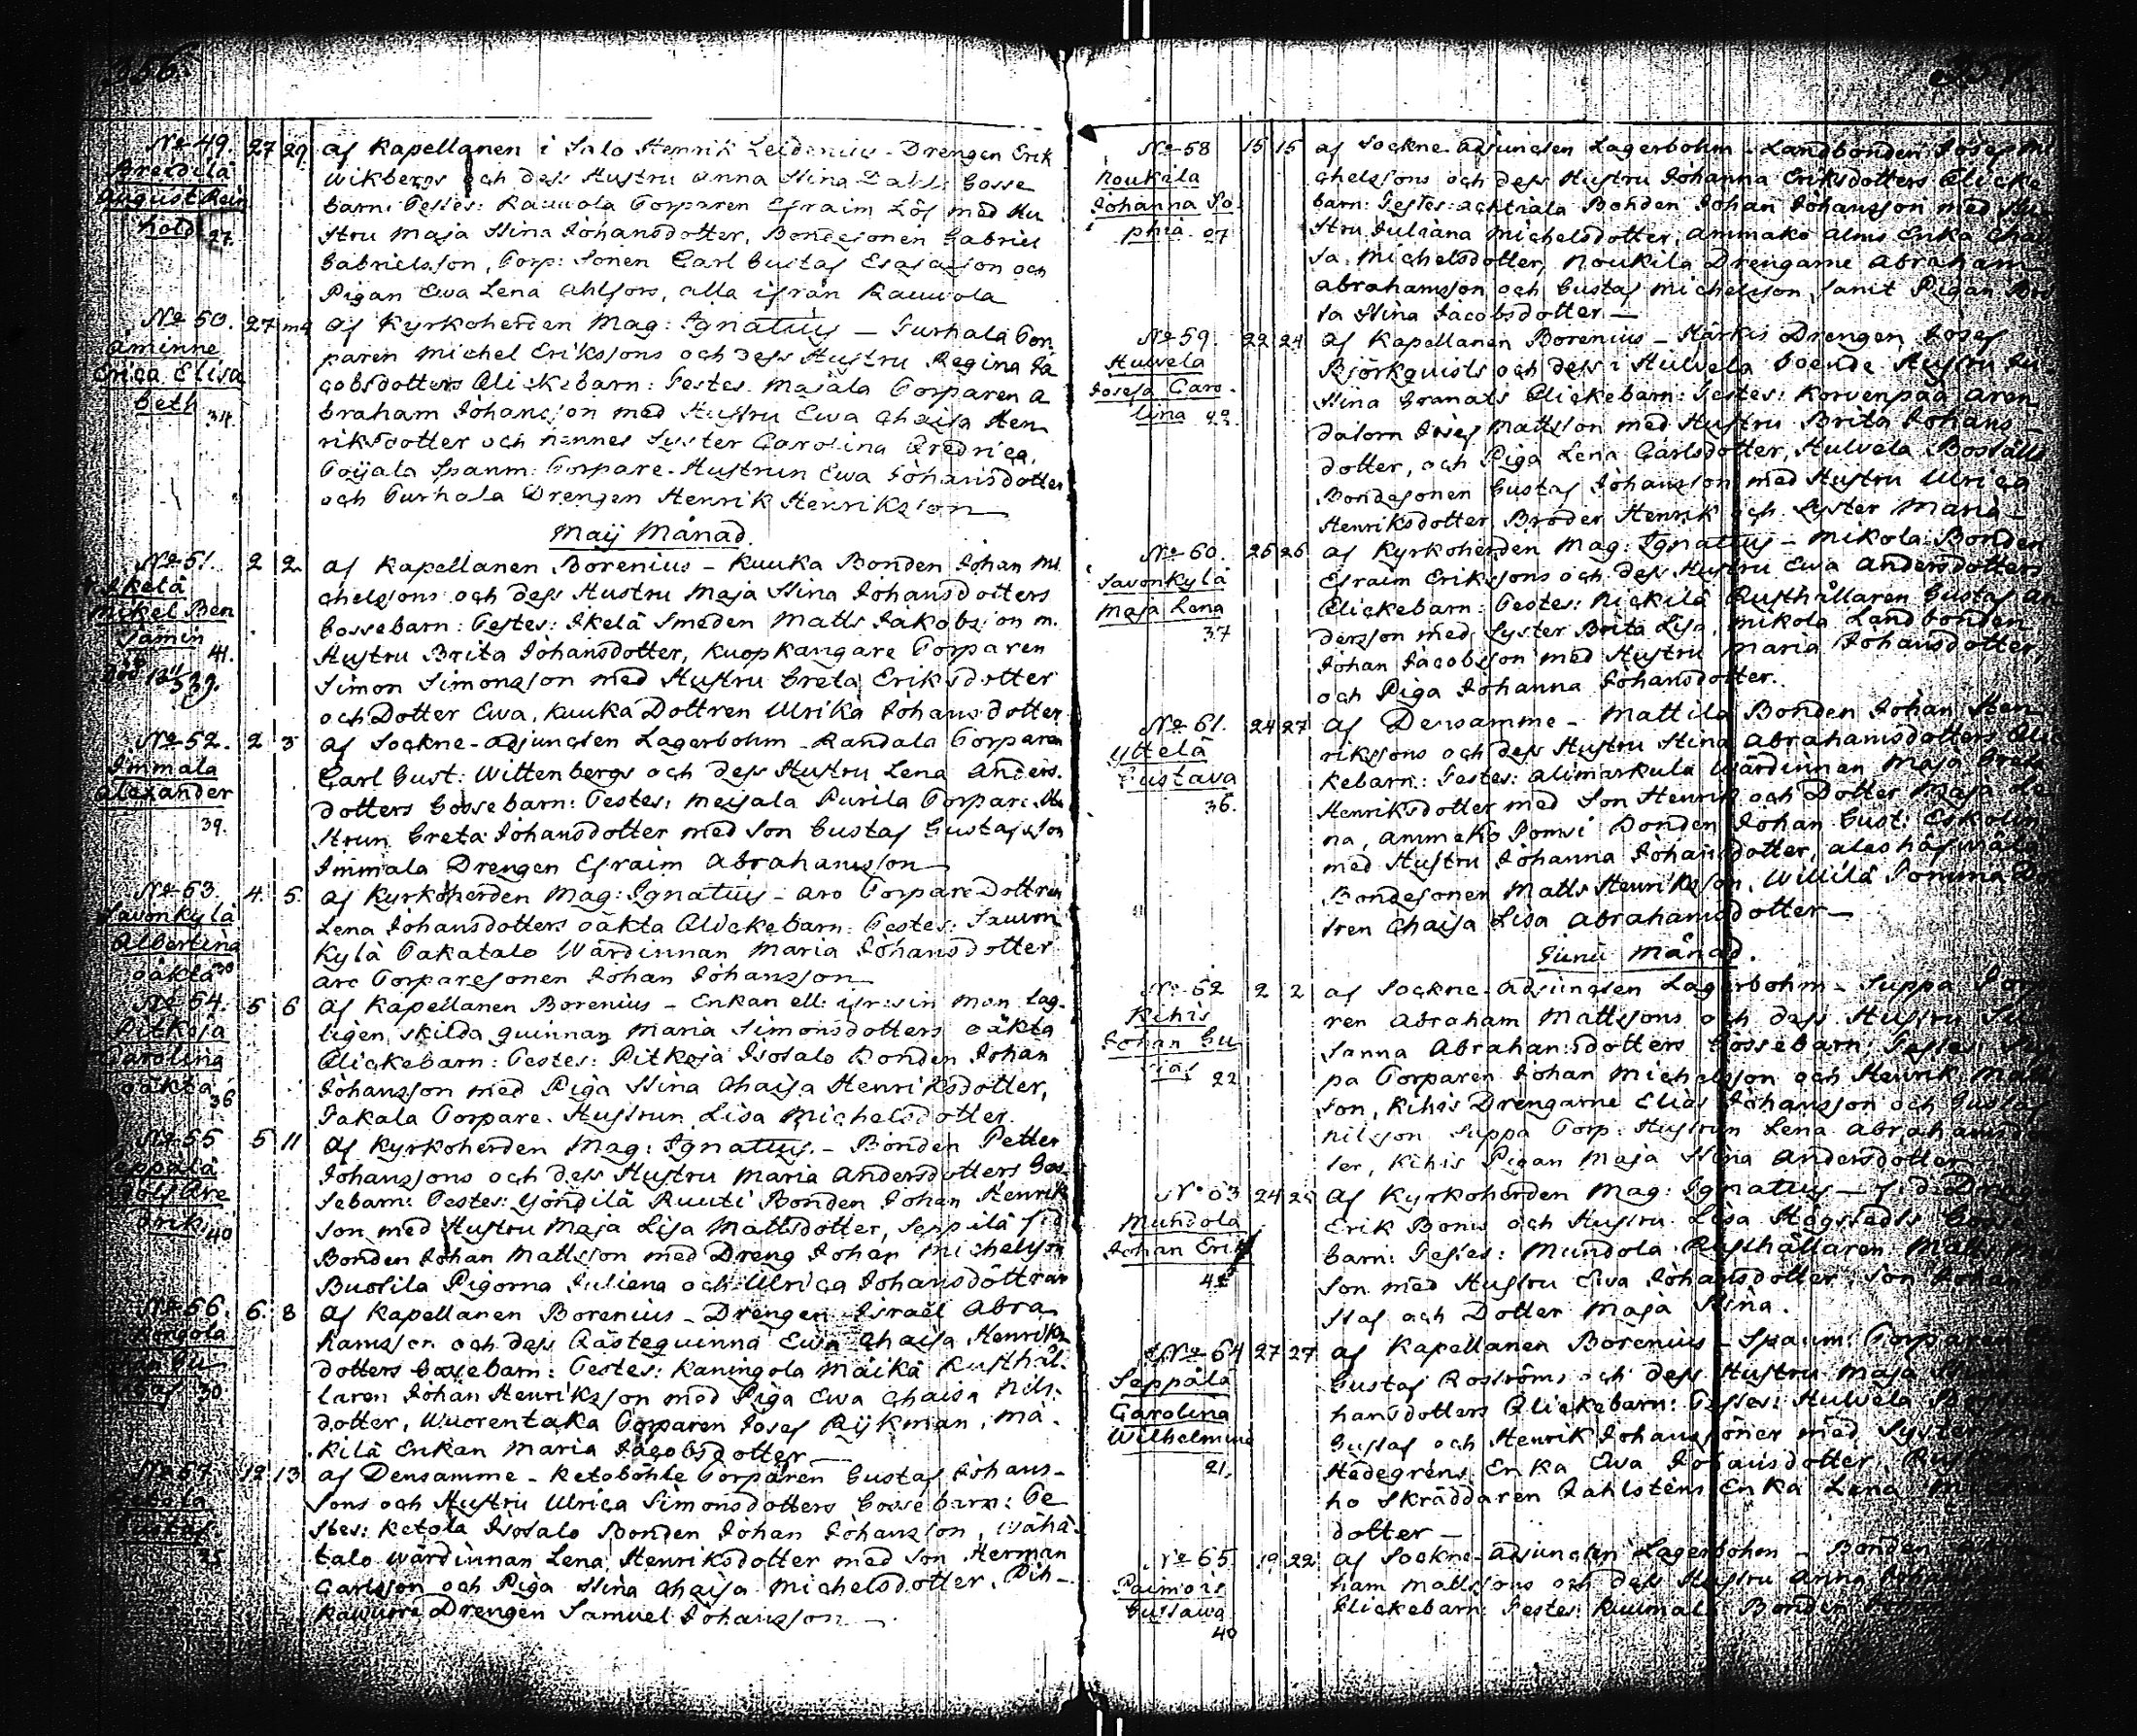 356.
No 49. 27 29 af Kapellanen i Salo Henrik Leidenius - Drengen Erik
Areldelä Wikbergs och dess Hustru Anna Stina Dahls Gosse
August Rein barn: Testes: Rauvola Torparen Efraim Löf med Hu
hold 27. stru Maja Stina Johansdotter, Bondesonen Gabriel
Gabrielsson, Torp: Sonen Carl Gustaf Esaiasson och
Pigan Ewa Lena Ahlfors, alla ifrån Rauvola
No 50. 27 af Kyrkoherden Mag: Ignatius — Turhala Tor
Åminne paren Michel Erikssons och dess Hustru Regina Ja
Erica Elisa cobsdotters Flickebarn: Testes. Majala Torparen A
beth 34. braham Johansson med Hustru Ewa Chaisa Hen
riksdotter och hennes Syster Carolina Fredrica,
Toijala Spanm: Torpare-Hustrun Ewa Johansdotter
och Turhala Drengen Henrik Henriksson
Maij Månad.
No 51. 2 2. af Kapellanen Borenius - Kuuka Bonden Johan Mi
Ikelä chelssons och dess Hustru Maja Stina Johansdotters
Mikel Ben Gossebarn: Testes: Ikelä Smeden Matts Jakobsson m.
jamin 41. Hustru Brita Johansdotter, Kuopkangare Torparen
Död Simon Simonsson med Hustru Greta Eriksdotter
och Dotter Ewa, Kuuka Dottren Ulrika Johansdotter
No 52. 2 3 af Sockne-Adjuncten Lagerbohm - Randala Torparen
Immala Carl Gust: Wittenbergs och dess Hustru Lena Anders.
Alexander dotters Gossebarn: Testes: Meijala Purila Torpare Hu
39. strun Greta Johansdotter med Son Gustaf Gustafsson
Immala Drengen Efraim Abrahamsson
No 53. 4. 5. af Kyrkoherden Mag: Ignatius - Aro Torpare Dottren
Savonkylä Lena Johansdotters oäkta Flickebarn: Testes: Savon
Albertina kylä Takatalo Wärdinnan Maria Johansdotter
oäkta 30 Aro Torparesonen Johan Johansson
No 54. 5 6 af Kapellanen Borenius - Enkan ell: ifr: sin man lag-
Pitkoja ligen skilda quinnan Maria Simonsdotters oäkta
Carolina Flickebarn: Testes: Pitkoja Isotalo Bonden Johan
oäkta 36 Johansson med Piga Stina Chaisa Henriksdotter,
Takala Torpare-Hustrun Lisa Michelsdotter.
No 55 5 11 af Kyrkoherden Mag: Ignatius. - Bonden Petter
Seppälä Johanssons och dess Hustru Maria Andersdotters Gos-
Adolf Fre sebarn: Testes: Göndilä Ruuti Bonden Johan Henrik
drik 40 son med Hustru Maja Lisa Mattsdotter, Seppilä
Bonden Johan Mattsson med Dreng Johan Michelsson
Buotila Pigorna Juliana och Ulrica Johansdöttrar
No 56. 6. 8 af Kapellanen Borenius - Drengen Israel Abra
Kaningola hamsson och dess Fästequinna Ewa Chaisa Henriks
Johan Gu dotters Gossebarn: Testes: Kaningola Mäikä Rusthål-
staf 30. laren Johan Henriksson med Piga Ewa Chaisa Nils-
dotter, Wuorentaka Torparen Josef Rÿkman, Mä-
kilä Enkan Maria Jacobsdotter —
No 57. 12 13. af Densamme - Ketoböhle Torparen Gustaf Johans-
Ketola sons och Hustru Ulrica Simonsdotters Gossebarn: Te
Gustaf. stes: Ketola Isotalo Bonden Johan Johansson, Wähä-
35 talo Wärdinnan Lena Henriksdotter med Son Herman
Carlsson och Piga Stina Chaisa Michelsdotter, Pih-
kawuori Drengen Samuel Johansson —
357.
No 58 15 15 af Sockne-Adjuncten Lagerbohm - Landbonden Josef Mi
Noukila chelssons och dess Hustru Johanna Eriksdotters Flicke
Johanna So barn: Testes: Achtiala Bonden Johan Johansson med Hu
phia. 07 stru Juliana Michelsdotter, Ammako Alms Enka Chai
sa Michelsdotter, Noukila Drengarne Abraham
Abrahamsson och Gustaf Michelsson, samt Pigan
sa Stina Jacobsdotter —
No 59. 22 24 af Kapellanen Borenius - Härkis Drengen Josef
Hulvela Björkquists och dess i Hulvela boende Hustru
Josefa Caro- Stina Granats Flickebarn: Testes: Korvenpää Aren
lina datorn Josef Mattsson med Hustru Brita Johans
dotter, och Piga Lena Carlsdotter, Hulvela Boställs
Bondesonen Gustaf Johansson med Hustru Ulrica
Henriksdotter, Broder Henrik och Syster Maria -
No 60. 26 26 af Kyrkoherden Mag: Ignatius - Mikola Bonden
Savonkylä Efraim Erikssons och dess Hustru Ewa Andersdotters
Maja Lena Flickebarn: Testes: Nickilä Rusthållaren Gustaf An
37 dersson med Syster Brita Lisa, Mikola Landbonden
Johan Jacobsson med Hustru Maria Johansdotter,
och Piga Johanna Johansdotter.
No 61. 24 27 af Densamme - Mattila Bonden Johan Hen
Uttelä rikssons och dess Hustru Stina Abrahamsdotters Flic
Gustava kebarn: Testes: Alimarkula Wärdinnan Maja Greta
36. Henriksdotter med Son Henrik och Dotter Maja Le
na, Ammeko Bonden Johan Gust: Eskolin
med Hustru Johanna Johansdotter,
Bondesonen Matts Henriksson, Willilä
tren Chaisa Lisa Abrahamsdotter —
Junii Månad.
No 62 2 2 af Sockne-Adjuncten Lagerbohm - Suppa Torp
Kihis ren Abraham Mattssons och dess Hustru Su
Johan Gu sanna Abrahamsdotters Gossebarn: Testes: Sup
staf 22 pa Torparen Johan Michelsson och Henrik Matts
son, Kihis Drengarne Elias Johansson och Gustaf
Nilsson Suppa Torp: Hustrun Lena Abrahamsdot
ter, Kihis Pigan Maja Stina Andersdotter
No 63 24 af Kyrkoherden Mag: Ignatius —
Mundola Erik Boms och Hustru Lisa Högstedts Gosse
Johan Erik barn: Testes: Mundola Rusthållaren Matts
son med Hustru Ewa Johansdotter, Son Johan
staf och Dotter Maja Stina.
No 64 27 27 af Kapellanen Borenius - Spanm: Torparen
Seppälä Gustaf Roströms och dess Hustru Maja
Carolina hansdotters Flickebarn: Testes: Hulvela
Wilhelmina Gustaf och Henrik Johanssöner med Syster
21. Hedegrens Enka Ewa Johansdotter,
ho Skräddaren Dahlstens Enka Lena
dotter —
No 65. 19 22 af Sockne-Adjuncten Lagerbohm - Bonden
Paimois ham Mattssons och dess Hustru Anna Johans
Gustawa Flickebarn: Testes: Bonden
40